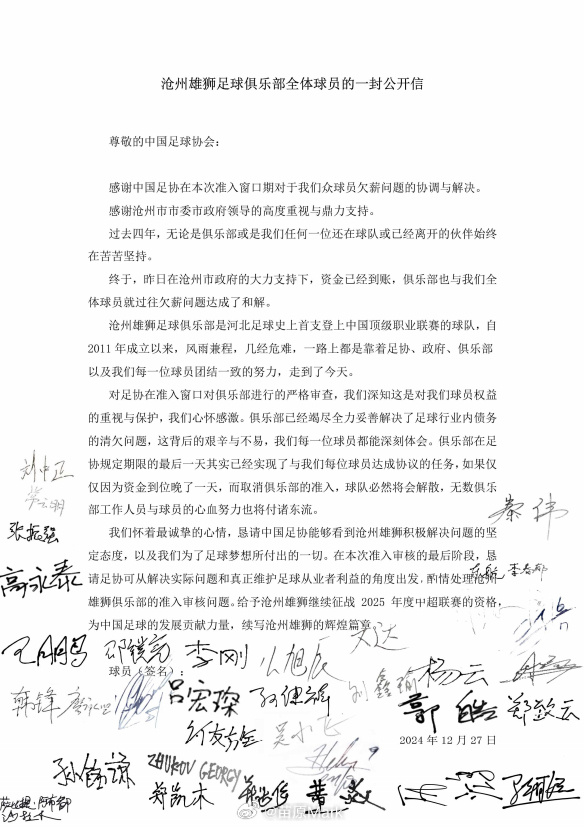 沧州雄狮足球俱乐部全体球员的一封公开信
尊敬的中国足球协会：
感谢中国足协在本次准入窗口期对于我们众球员欠薪问题的协调与解决。
感谢沧州市市委市政府领导的高度重视与鼎力支持。
过去四年，无论是俱乐部或是我们任何一位还在球队或已经离开的伙伴始终
在苦苦坚持。
终于，昨日在沧州市政府的大力支持下，资金已经到账，俱乐部也与我们全
体球员就过往欠薪问题达成了和解。
沧州雄狮足球俱乐部是河北足球史上首支登上中国顶级职业联赛的球队，自
2011年成立以来，风雨兼程，几经危难，一路上都是靠着足协、政府、俱乐部
以及我们每一位球员团结一致的努力，走到了今天。
对足协在准入窗口对俱乐部进行的严格审查，我们深知这是对我们球员权益
的重视与保护，我们心怀感激。俱乐部已经竭尽全力妥善解决了足球行业内债务
的清欠问题，这背后的艰辛与不易，我们每一位球员都能深刻体会。俱乐部在足
协规定期限的最后一天其实已经实现了与我们每位球员达成协议的任务，如果仅
仅因为资金到位晚了一天，而取消俱乐部的准入，球队必然将会解散，无数俱乐
部工作人员与球员的心血努力也将付诸东流。
我们怀着最诚挚的心情，恳请中国足协能够看到沧州雄狮积极解决问题的坚
定态度，以及我们为了足球梦想所付出的一切。在本次准入审核的最后阶段，恳
请足协可从解决实际问题和真正维护足球从业者利益的角度出发，酌情处理沧州
雄狮俱乐部的准入审核问题。给予沧州雄狮继续征战 2025 年度中超联赛的资格，
为中国足球的发展贡献力量，续写沧州雄狮的辉煌篇章。
球员（签名）：
张振强
高永泰
秦伟
王鹏鹏
李刚
文达
杨云
韩锋
吕宏琛
孙健鑫
刘鑫瑜
郭皓
郑致云
吴小飞
2024 年 12 月 27 日
ZHUKOV GEORGY
郑凯木
@苗原Mark